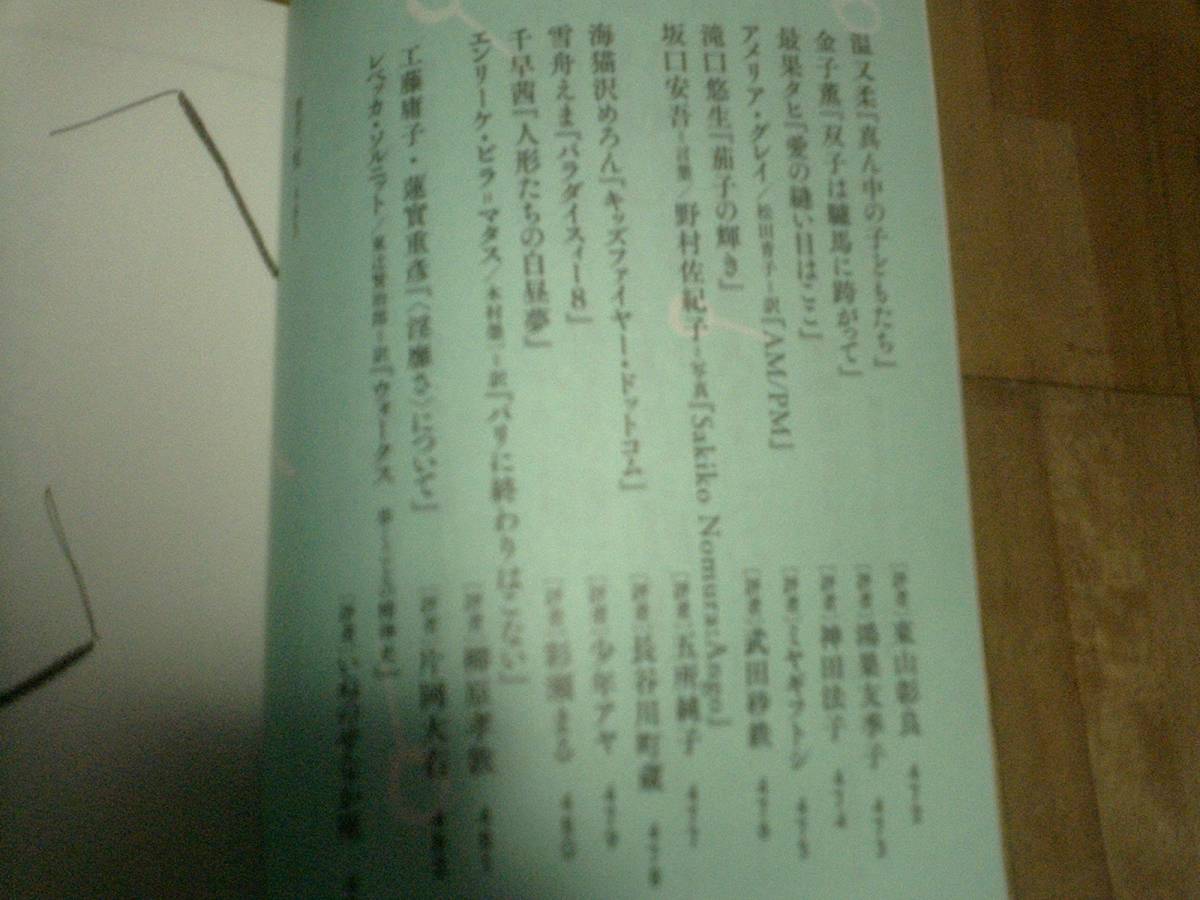 温又柔『真ん中の子どもたち』 [評者] 東山彰良 472
金子薫『双子は驢馬に跨がって』 [評者] 鴻巣友季子 473
最果タヒ『愛の縫い目はここ』 [評者] 神田法子 474
アメリア・グレイ/松田青子=訳『AM/PM』 [評者] ミヤギフトシ 475
滝口悠生『茄子の輝き』 [評者] 武田砂鉄 476
坂口安吾=言葉/野村佐紀子=写真『Sakiko Nomura:Ango』 [評者] 五所純子 477
海猫沢めろん『キッズファイヤー・ドットコム』 [評者] 長谷川町蔵 478
雪舟えま『パラダイスィー8』 [評者] 少年アヤ 479
千早茜『人形たちの白昼夢』 [評者] 彩瀬まる 480
エンリーケ・ビラ=マタス/木村榮一=訳『パリに終わりはこない』 [評者] 柳原孝敦 481
工藤庸子・蓮實重彦『〈淫靡さ〉について』 [評者] 片岡大右 482
レベッカ・ソルニット/東辻賢治郎=訳『ウォークス 歩くことの精神史』 [評者]